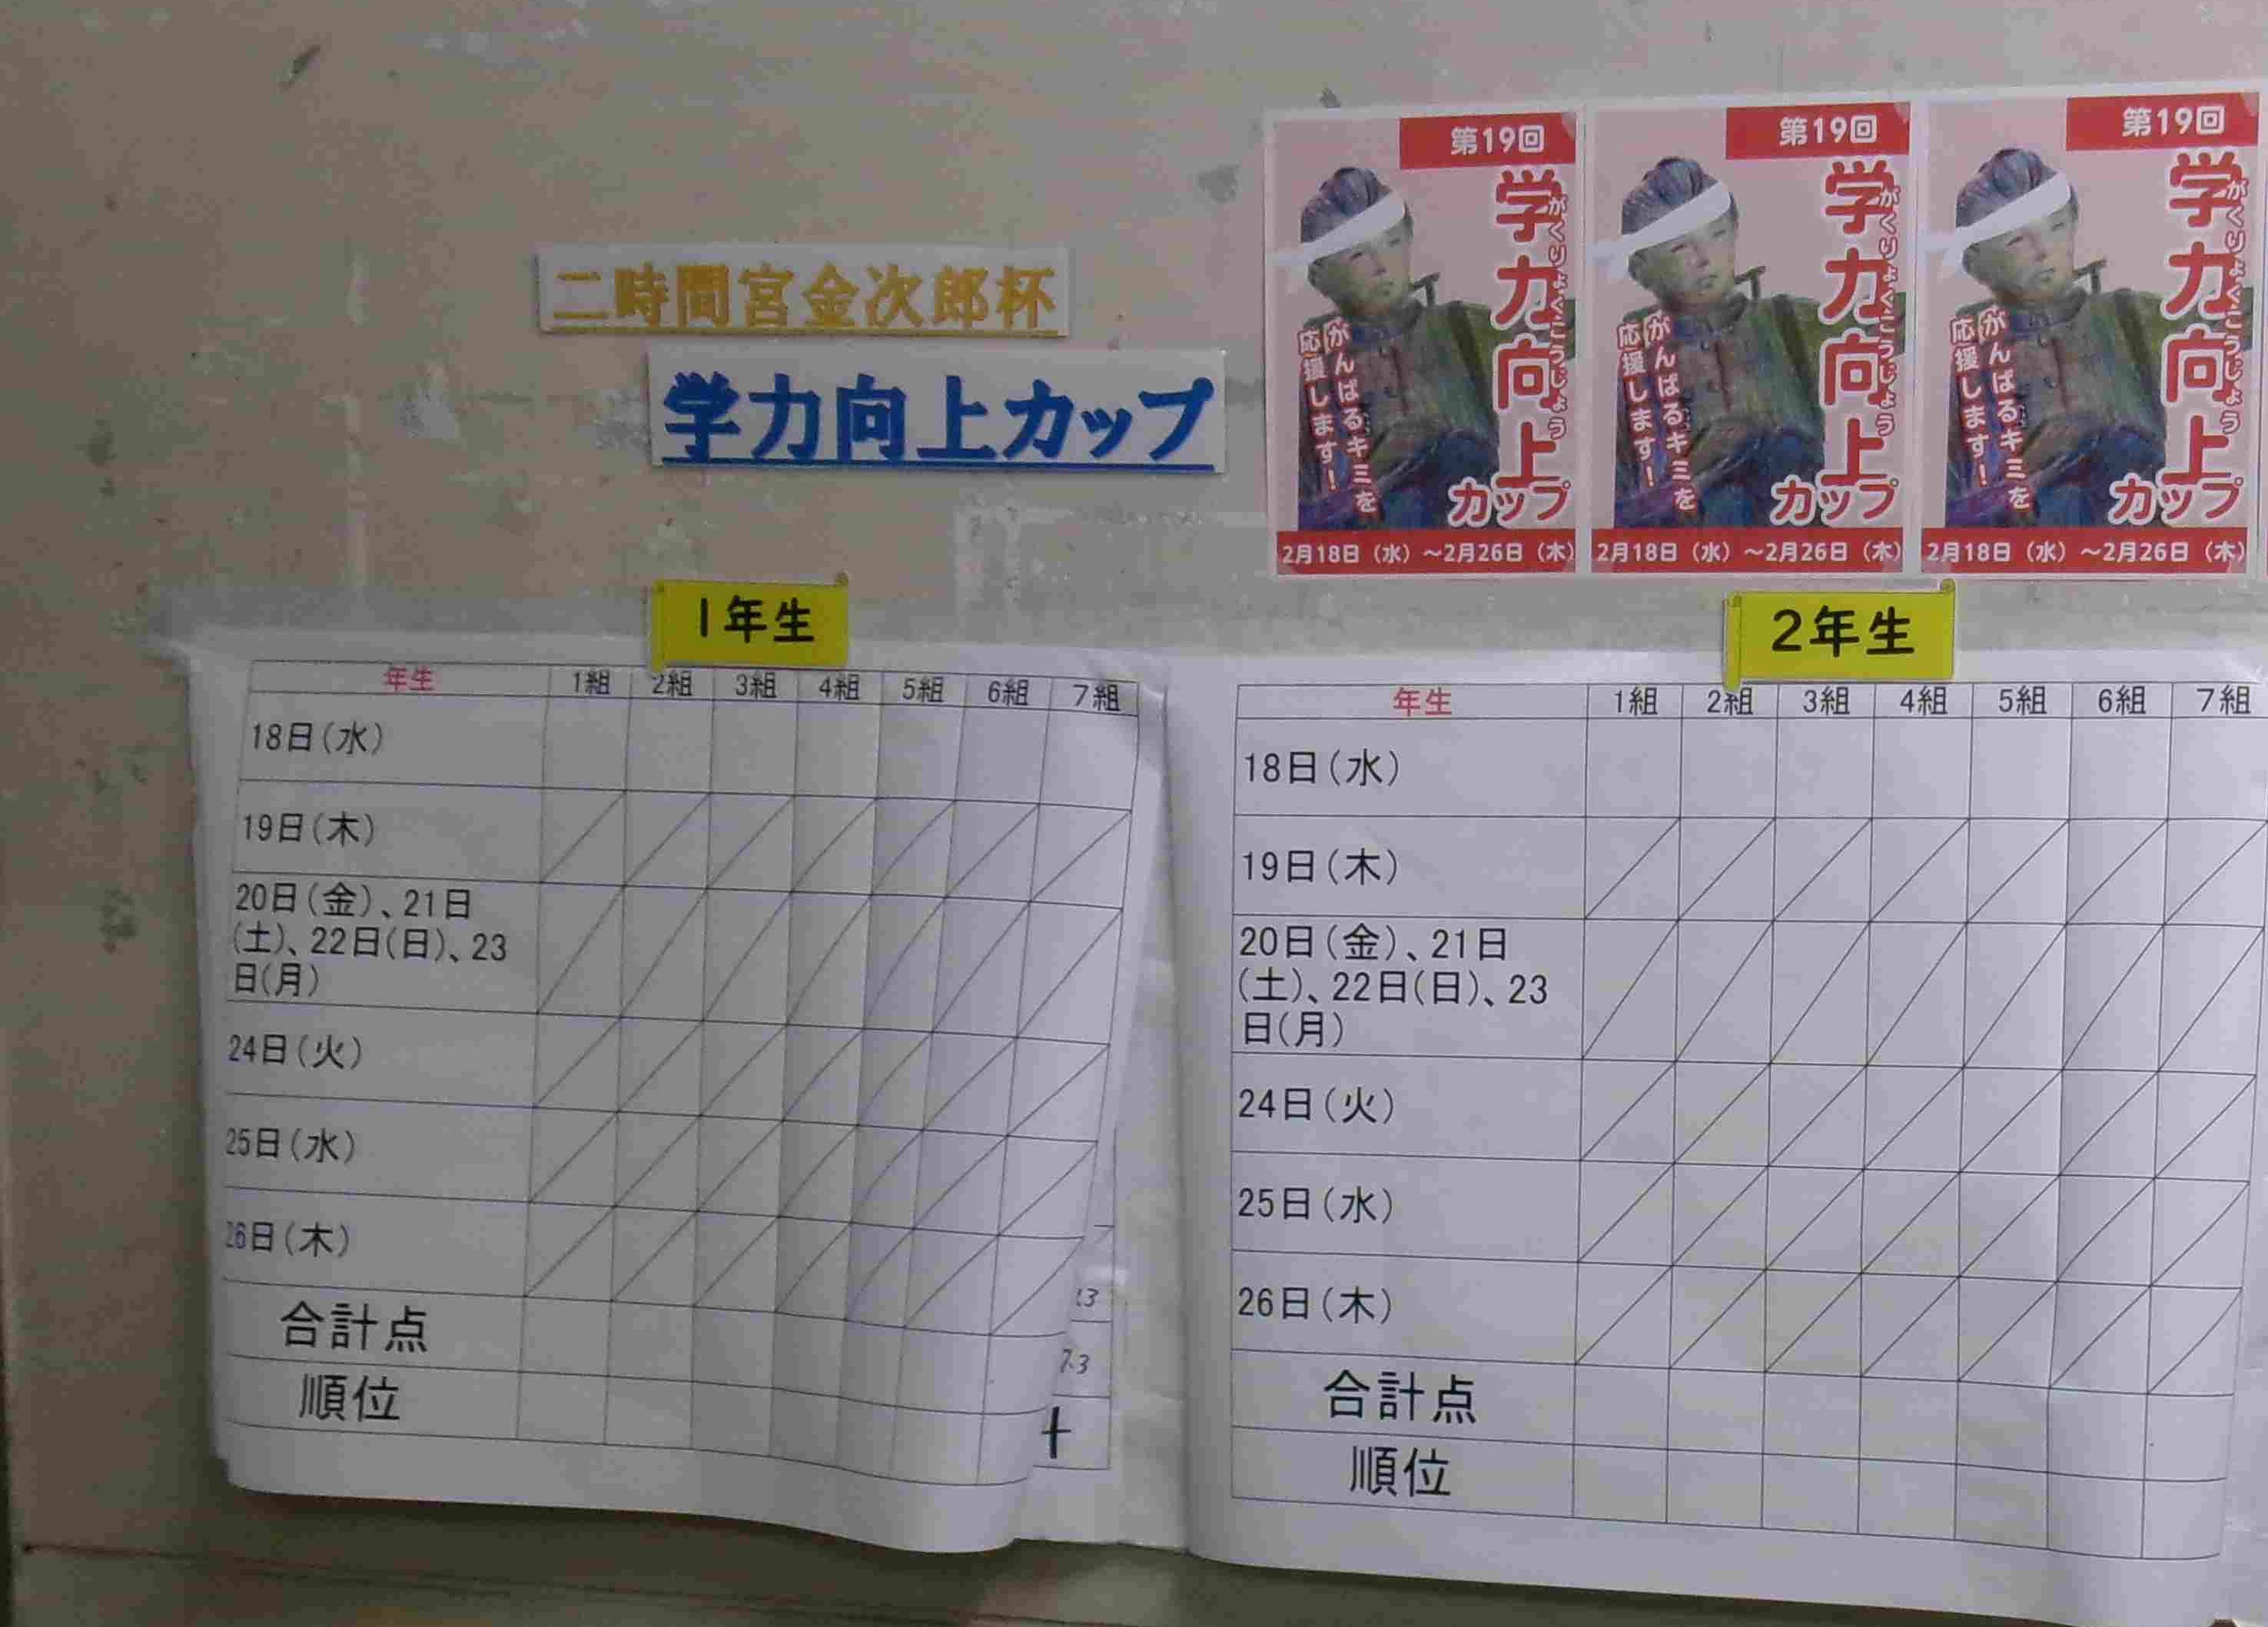 二時間宮金次郎杯
学力向上カップ
第19回
学力向上
がくりょくこうじょう
カップ
がんばるキミを
応援します！
2月18日（水）～2月26日（木）
第19回
学力向上
がくりょくこうじょう
カップ
がんばるキミを
応援します！
2月18日（水）～2月26日（木）
第19回
学力向上
がくりょくこうじょう
カップ
がんばるキミを
応援します！
2月18日（水）～2月26日（木）
1年生
年生 1組 2組 3組 4組 5組 6組 7組
18日（水）
19日（木）
20日（金）、21日
(土)、22日(日)、23
日(月)
24日（火）
25日（水）
26日（木）
合計点
順位
2年生
年生 1組 2組 3組 4組 5組 6組 7組
18日（水）
19日（木）
20日（金）、21日
(土)、22日(日)、23
日(月)
24日（火）
25日（水）
26日（木）
合計点
順位